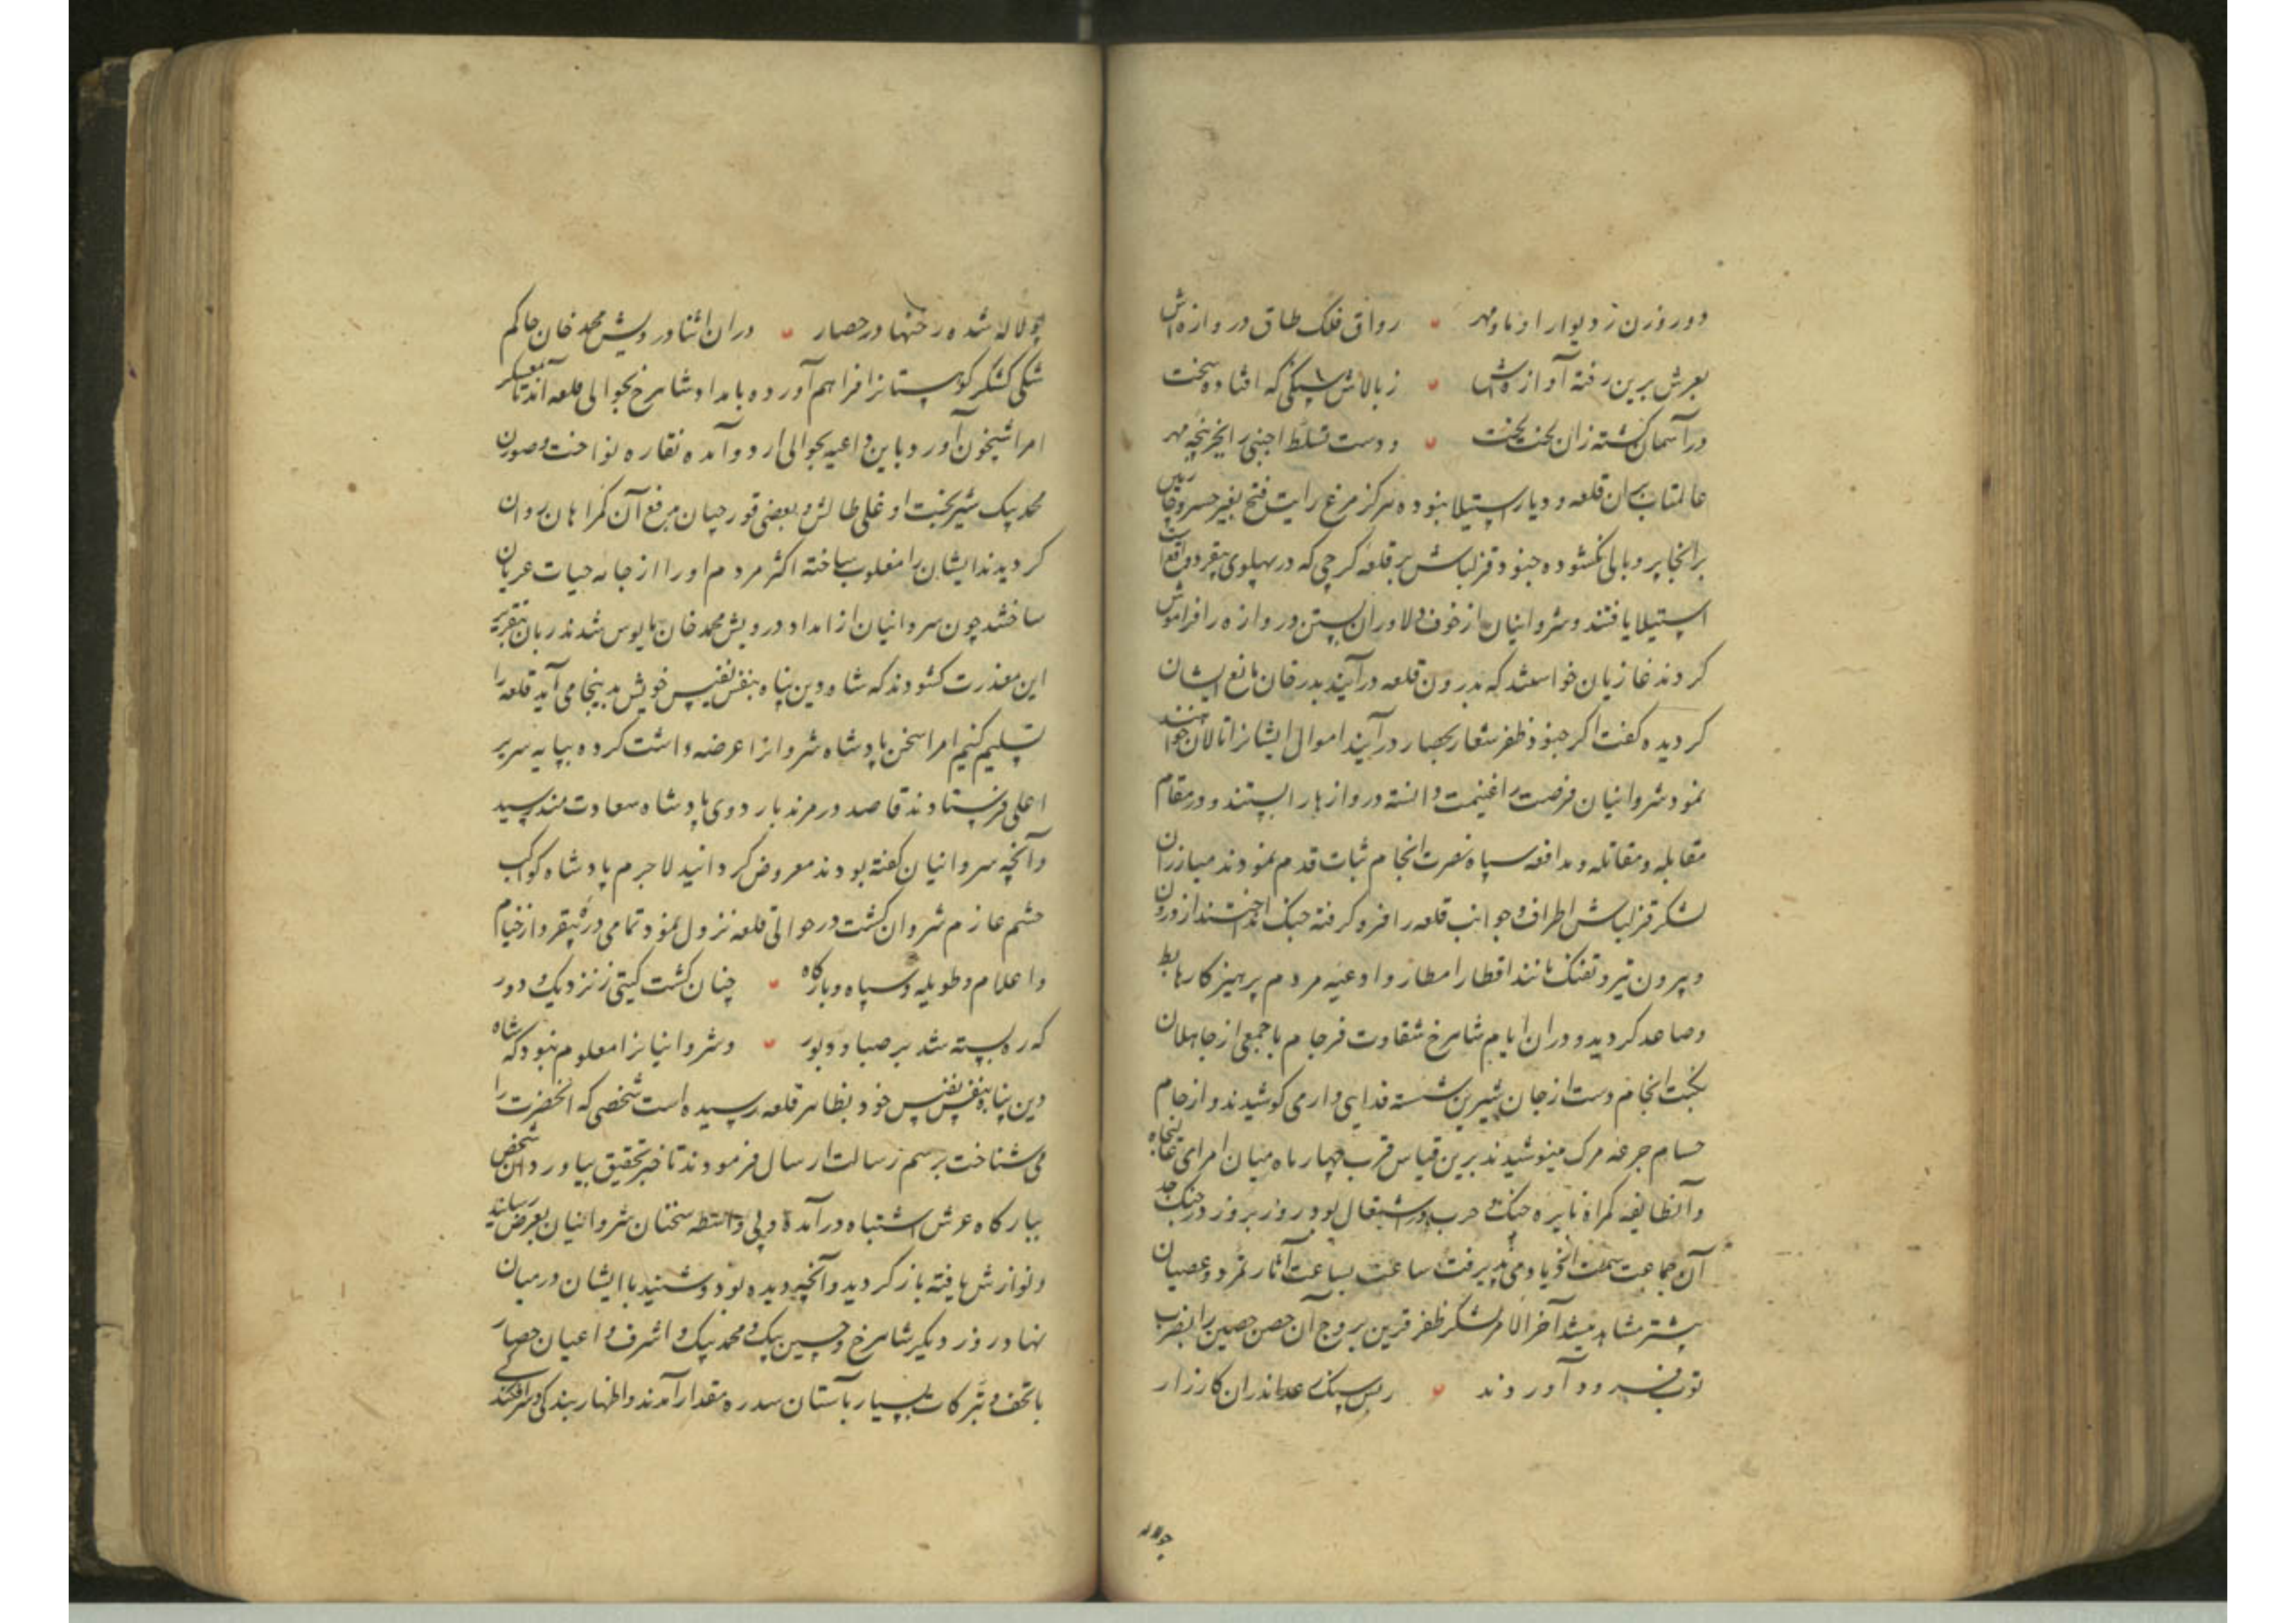 دو روزن ز دیوار او ماه و مهر رواق فلک طاق دروازه‌اش
بعرش برین رفته آوازه‌اش ز بالاش سنکی که افتاده سخت
در آسمان کشته زان لخت لخت و دست تسلط اجنبی را بخر پنجه مهر
عالمتاب بران قلعه و دیار استیلا نبوده هرکز مرغ رایت فتح بغیر خسرو خاور
برانجا پر و بالی نکشوده جنود قزلباش بر قلعه کرجی که در پهلوی بیقرد واقعست
استیلا یافتند و شروانیان از خوف دلاوران بستن دروازه را فراموش
کردند غازیان خواستند که بدرون قلعه درآیند بدرخان مانع ایشان
کردیده کفت اکر جنود ظفر شعار بحصار درآیند اموال ایشانرا تالان خواهند
نمود شروانیان فرصت را غنیمت دانسته دروازها را ببستند و در مقام
مقابله و مقاتله و مدافعه سپاه نصرت انجام ثبات قدم نمودند مبارزان
لشکر قزلباش اطراف و جوانب قلعه را فرو کرفته جنک انداختند از درون
و بیرون تیر و تفنک مانند اقطار امطار و ادعیه مردم پرهیزکار هابط
و صاعد کردید و در ان ایام شاهرخ شقاوت فرجام با جمعی از جاهلان
نکبت انجام دست از جان شیرین شسته فدایی وار می کوشیدند و از جام
حسام جرعه مرک مینوشیدند برین قیاس قرب چهار ماه میان امرای
وآنطایفه کمراه نایره جنک و حرب در اشتعال بود روز بروز در جنک
آن جماعت سمت ازدیاد می پذیرفت ساعت بساعت آثار تمرد و عصیان
بیشتر مشاهد میشد آخر الامر لشکر ظفر قرین بروج آن حصن حصین را بضرب
توب فرود آوردند ز بس سنک رعد اندران کارزار
جولاله
چو لاله شده رخنها در حصار دران اثنا درویش محمد خان حاکم
شکی لشکر کوهستانرا فراهم آورده بامداد شاهرخ بحوالی قلعه آمد تا بمعسکر
امرا شبیخون آورد و باین داعیه بحوالی اردو آمده نقاره نواخت و صورن
محمد بیک شیربخت اوغلی طالش و بعضی قورچیان بدفع آن کمراهان روان
کردیدند ایشان را مغلوب ساخته اکثر مردم او را از جامه حیات عریان
ساختند چون شروانیان از امداد درویش محمد خان مایوس شدند زبان بتقریر
این معذرت کشودند که شاه دین پناه بنفس نفیس خویش بدینجا می آید قلعه را
تسلیم کنیم امرا سخن پادشاه شروانرا عرضه داشت کرده بپایه سریر
اعلی فرستادند قاصد در مرند باردوی پادشاه سعادتمند رسید
وآنچه شروانیان کفته بودند معروض کردانید لاجرم پادشاه کوکب
حشم عازم شروان کشت در حوالی قلعه نزول نمود تمامی دره بیقرد از خیام
و اعلام و طویله و سپاه و بارکاه چنان کشت کیتی ز نزدیک و دور
که ره بسته شد بر صبا و دبور و شروانیانرا معلوم نبود که شاه
دین پناه بنفس نفیس خود بظاهر قلعه رسیده است شخصی که آنحضرت را
می شناخت برسم رسالت ارسال فرمودند تا خبر تحقیق بیاورد آن شخص
ببارکاه عرش اشتباه درآمده و بی واسطه سخنان شروانیان بعرض رسانید
و نوازش یافته بازکردید و آنچه دیده بود و شنید با ایشان درمیان
نهاد روز دیکر شاهرخ و حسین بیک و محمد بیک و اشرف و اعیان حصار
با تحف و تبرکات بسیار بآستان سدره مقدار آمدند و اظهار بندکی و سرافکندکی